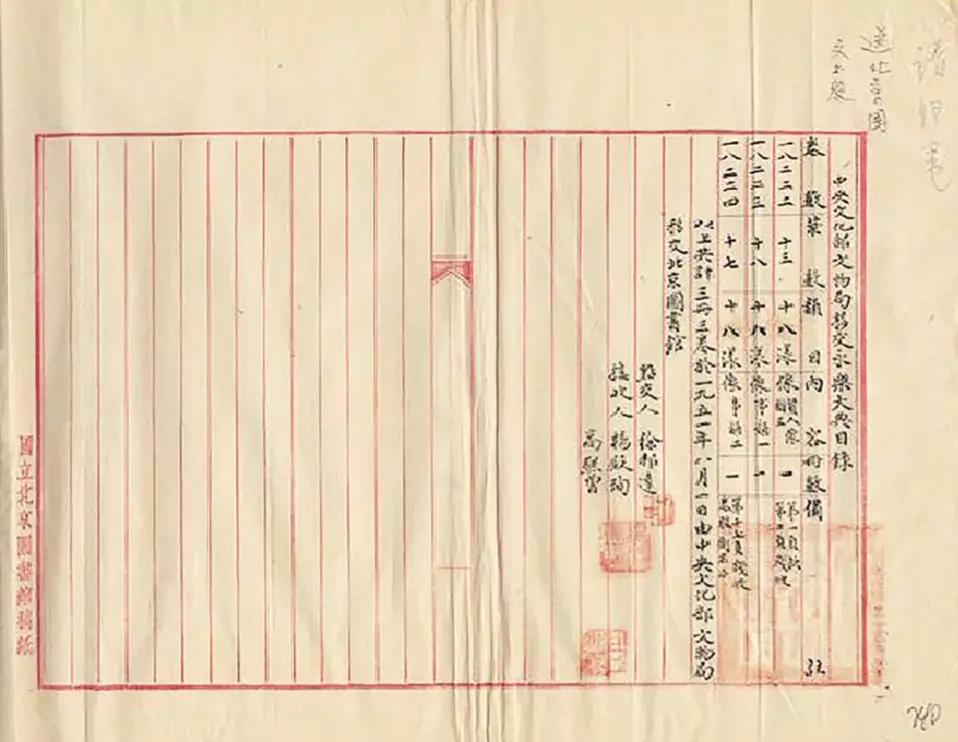 送北京圖
中央文化部文物局移交永樂大典目錄
卷數 葉數 韻目 內容 冊數 備註
一八二二二 十三 十八漾 像 一 第一頁缺 第二頁殘破
一八二二三 十八 十八漾 像 事韻一 一
一八二二四 十七 十八漾 像 事韻二 一 第十七頁殘破
以上共計三冊三卷於一九五一年八月一日由中央文化部文物局
移交北京圖書館
移交人 徐邦達
接收人
高熙曾
國立北京圖書館稿紙